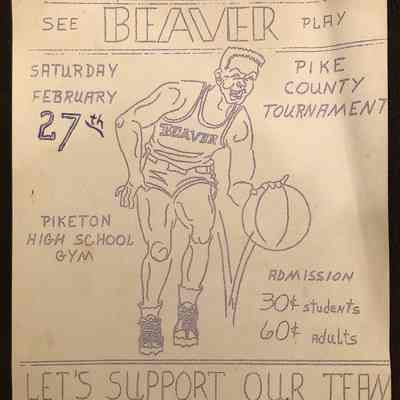 SEE BEAVER PLAY
SATURDAY
FEBRUARY
27th
PIKE
COUNTY
TOURNAMENT
BEAVER
PIKETON
HIGH SCHOOL
GYM
ADMISSION
30¢ students
60¢ adults
LET'S SUPPORT OUR TEAM